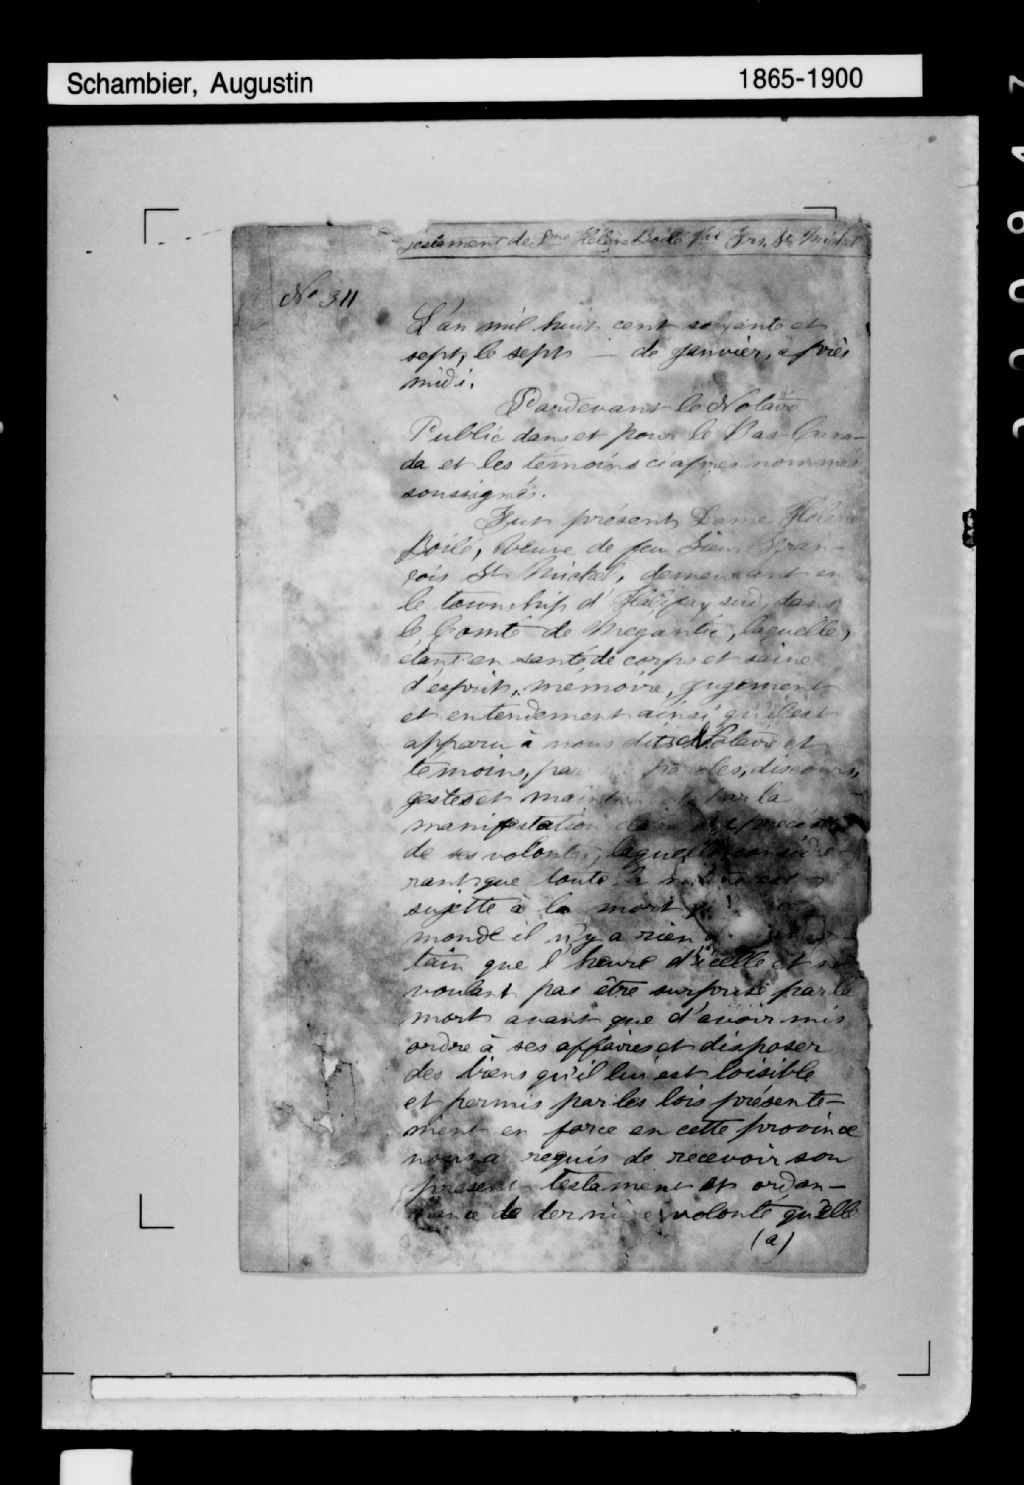 Schambier, Augustin 1865-1900
Testament de Dme Hélène Boilé Vve Frs. St Michel
No 311
L'an mil huit cent soixante et
sept, le sept — de janvier, après
midi.
Pardevant le Notaire
Public dans et pour le Bas Cana-
da et les témoins ci après nommés
soussignés.
Fut présente Dame Hélène
Boilé, Veuve de feu Sieur Fran-
çois St Michel, demeurant en
le township d'Halifax sud, dans
le Comté de Megantic, laquelle,
étant en santé de corps et saine
d'esprit, mémoire, jugement
et entendement ainsi qu'il est
apparu à nous dits Notaire et
témoins, par paroles, discours,
gestes et maintien par la
manifestation
de ses volontés, laquelle considé
rant que toute est
sujette à la mort
monde il n'y a rien
tain que l'heure d'icelle et ne
voulant pas être surprise par la
mort avant que d'avoir mis
ordre à ses affaires et disposer
des biens qu'il lui est loisible
et permis par les lois présente-
ment en force en cette province
nous a requis de recevoir son
présent testament et ordon-
nance de dernière volonté qu'elle
(a)